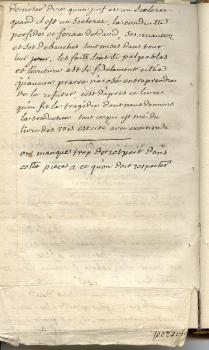 de nous dire qu'un juif est un scelerat
quand il est un scelerat, la conduite
perfides et
et ses debauches sont mises dans tout
leur jour, les faits sont si palpables
et l'ecriture est si fidelement citée
qu'aucun pretre n'a osé entreprendre
de le refuter c'est d'après ce livre
qu'on fit la tragedie dont nous donnons
la traduction tout ce qui est tiré du
livre des rois est cité avec exactitude
on manque trop de respect dans
cette piece a ce qu'on doit respecter